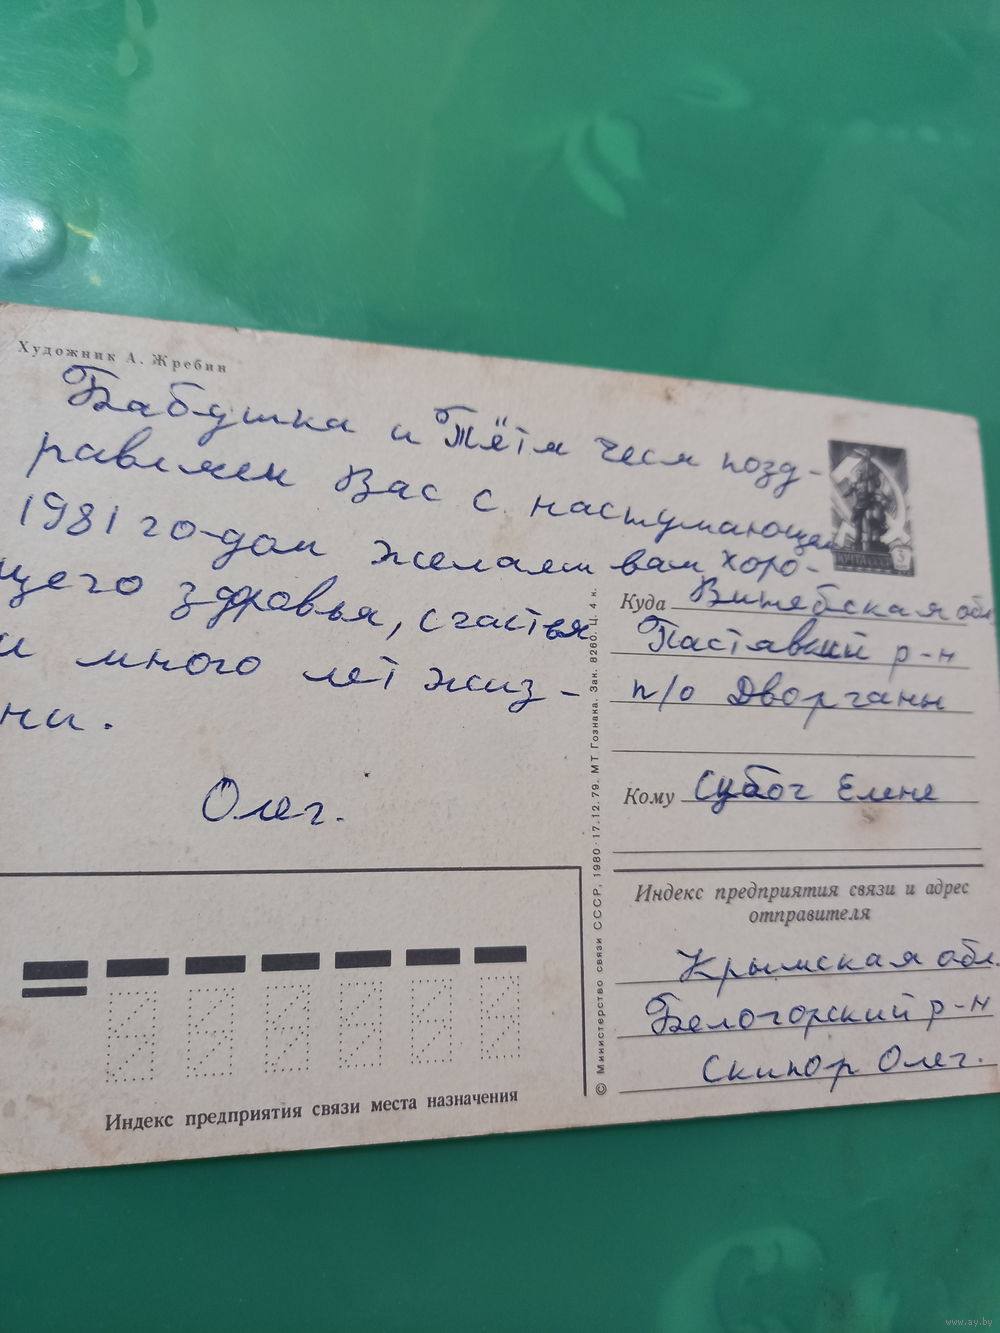 Художник А. Жребин
Бабушка и Тётя Чеся позд-
равляем Вас с наступающем
1981 го-дом желаем вам хоро-
щего здравья, счастья
и много лет жиз-
ни.
Олег.
ПОЧТА СССР
3
Куда Витебская обл
Паставский р-н
п/о Дворчаны
Кому Субоч Елене
Индекс предприятия связи и адрес
отправителя
Крымская обл.
Белогорский р-н
Скипор Олег.
© Министерство связи СССР, 1980. 17.12.79. МТ Гознака. Зак. 8260. Ц. 4 к.
Индекс предприятия связи места назначения
www.ay.by